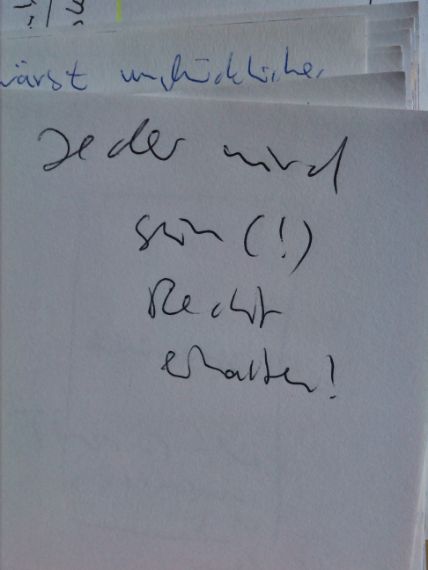 wärst unglücklicher
Jeder wird
sein (!)
Recht
erhalten!